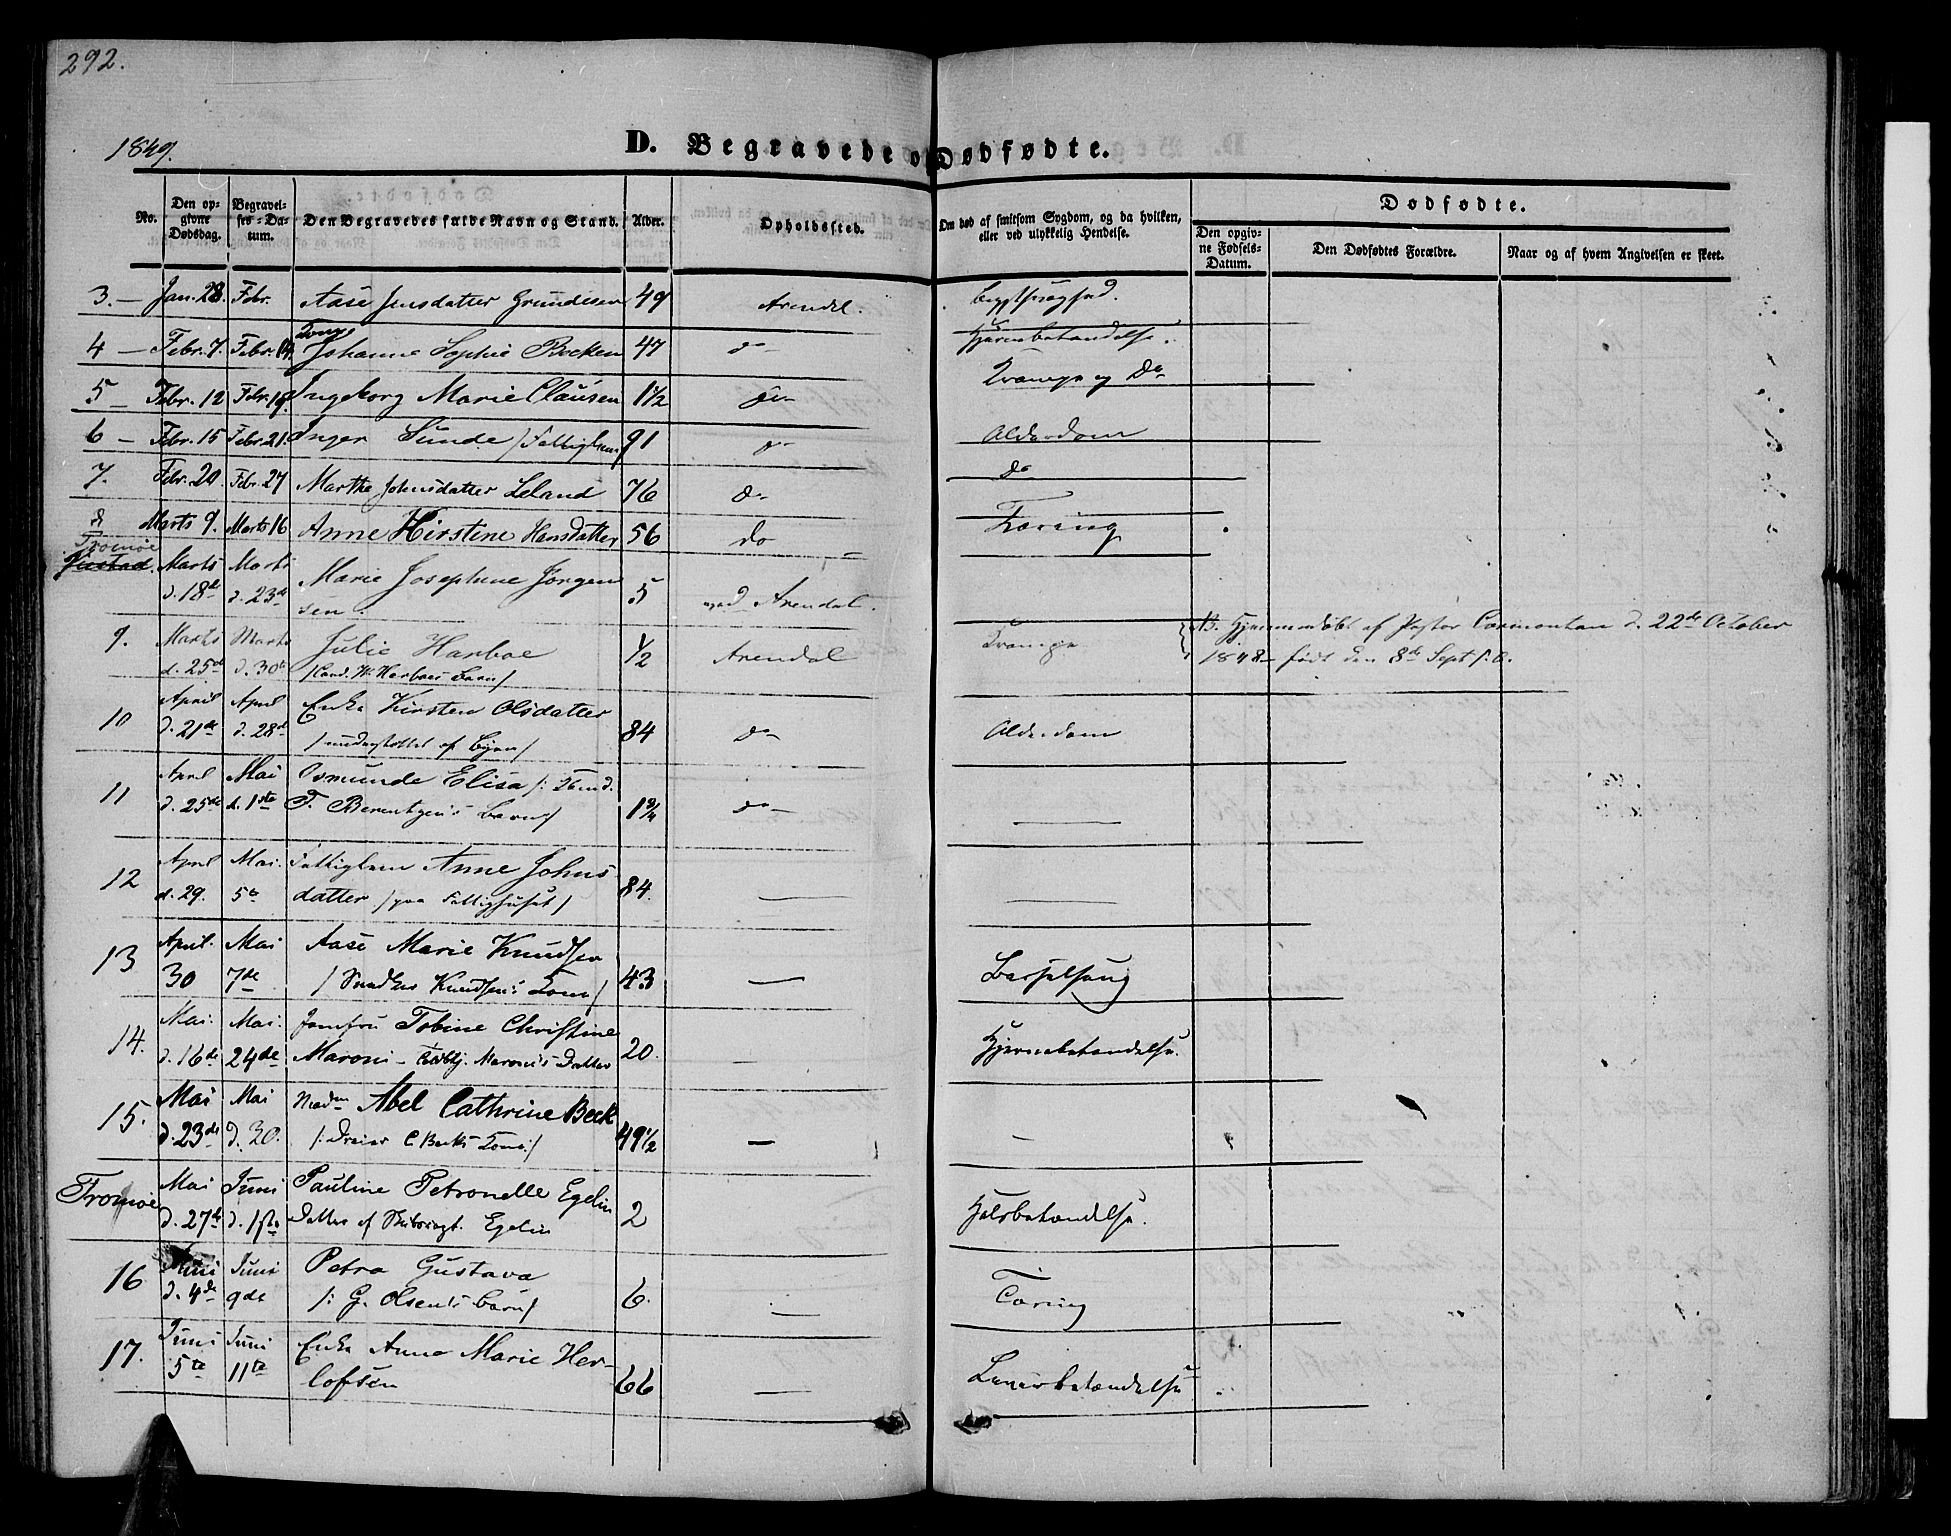 292.
1849.
D. Begravede og Dødfødte.
No.
Den opgivne Dødsdag.
Begravelses-Datum.
Den Begravedes fulde Navn og Stand.
Alder.
Opholdssted.
Om død af smitsom Sygdom, og da hvilken, eller ved ulykkelig Hendelse.
Dødfødte.
Den opgivne Fødsels-Datum.
Den Dødfødtes Forældre.
Naar og af hvem Angivelsen er skeet.
3. — Jan. 28. Febr. Aase Jensdatter Grundesen 49 Arendal.
4 — Febr. 7. Febr. 14. Johanne Sophie Bocken 47 do Hjernebetændelse.
5 — Febr. 12 Febr. 19. Ingeborg Marie Clausen 1½ do Krampe og Do
6 — Febr. 15 Febr. 21. Inger Sunde /Fattiglem/ 91 do Alderdom
7. Febr. 20 Febr. 27 Marthe Johnsdatter Leland 76 do do
8 Marts 9. Marts 16 Anne Kirstine Hansdatter 56 do Tæring
Tromøe
Marts d. 18de Marts d. 23de Marie Josephine Jørgensen 5 Arendal.
9. Marts d. 25de Marts d. 30te Julie Harboe /Cand. W. Harboes Barn/ ½ Arendal Krampe
NB. Hjemmedøbt af Pastor d. 22de October
1848 – født den 8de Sept.
10 April d. 21de April d. 28de Enke Kirsten Olsdatter /understøttet af Byen/ 84 do Alderdom
11 April d. 25de Mai d. 1ste Osmunde Elisa /: T. Berentzen's Barn/ 1¾ do —
12 April d. 29. Mai 5te Fattiglem Anne Johnsdatter /paa Fattighuset/ 84. — —
13 April 30 Mai 7de Aase Marie Knudsen /Snedker Knudsen's Kone/ 43 — Barselseng
14. Mai d. 16de Mai 24de Jomfru Tobine Christine Maroni – Maroni's Datter 20. — Hjernebetændelse.
15. Mai d. 23de Mai d. 30. Madm Abel Cathrine Beck /: Dreier C. Beck's Kone/ 49½ — —
Tromøe Mai d. 27de Juni d. 1ste Pauline Petronelle Egelin Datter af Egelin 2 Halsbetændelse.
16 Juni d. 4de Juni 9de Petra Gustava /: G. Olsen's Barn/ 6. — Tæring
17. Juni 5te Juni 11te Enke Anne Marie Herlofsen 66 — Leverbetændelse